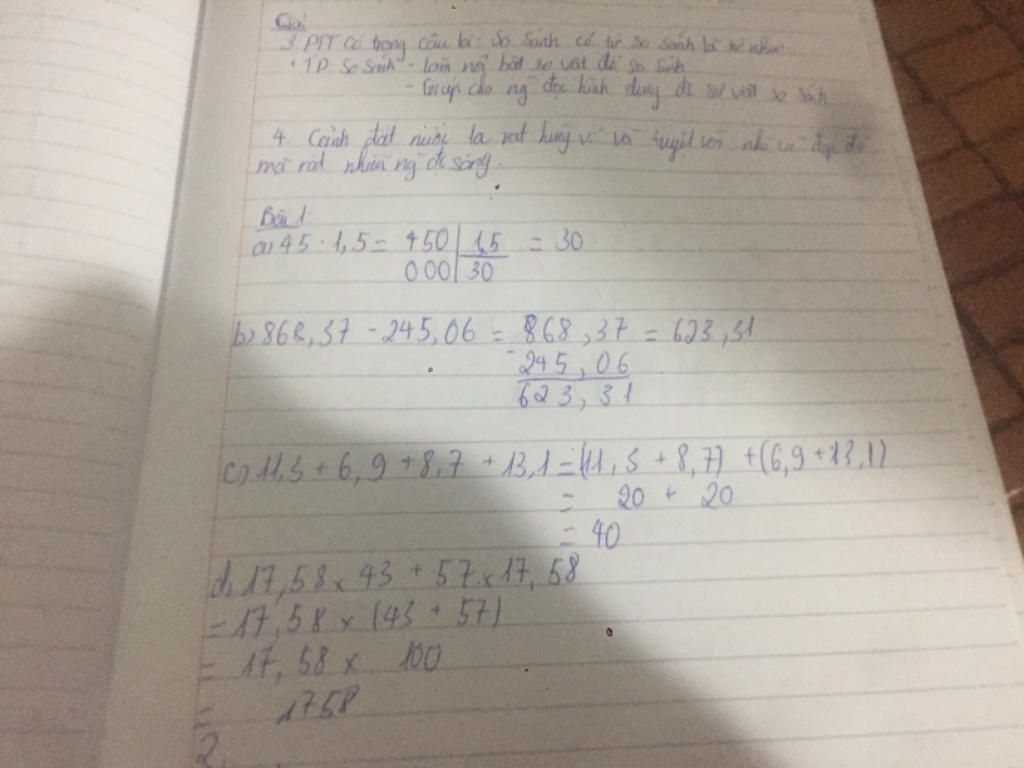 Giải
3. PTT có trong câu là: So sánh có từ so sánh là từ như
TD: So sánh - làm nổi bật sự vật để so sánh
- Giúp cho ng đọc hình dung đc sự vật so sánh
4. Cảnh đất nước ta rất hùng vĩ và tuyệt vời
mà rất nhiều ng để sống.
Bài 1:
a) 45 : 1,5 = 450 | 1,5 = 30
000 | 30
b) 868,37 - 245,06 = 868,37 = 623,31
- 245,06
623,31
c) 11,3 + 6,9 + 8,7 + 13,1 = (11,3 + 8,7) + (6,9 + 13,1)
= 20 + 20
= 40
d) 17,58 x 43 + 57 x 17,58
= 17,58 x (43 + 57)
= 17,58 x 100
= 1758
2.